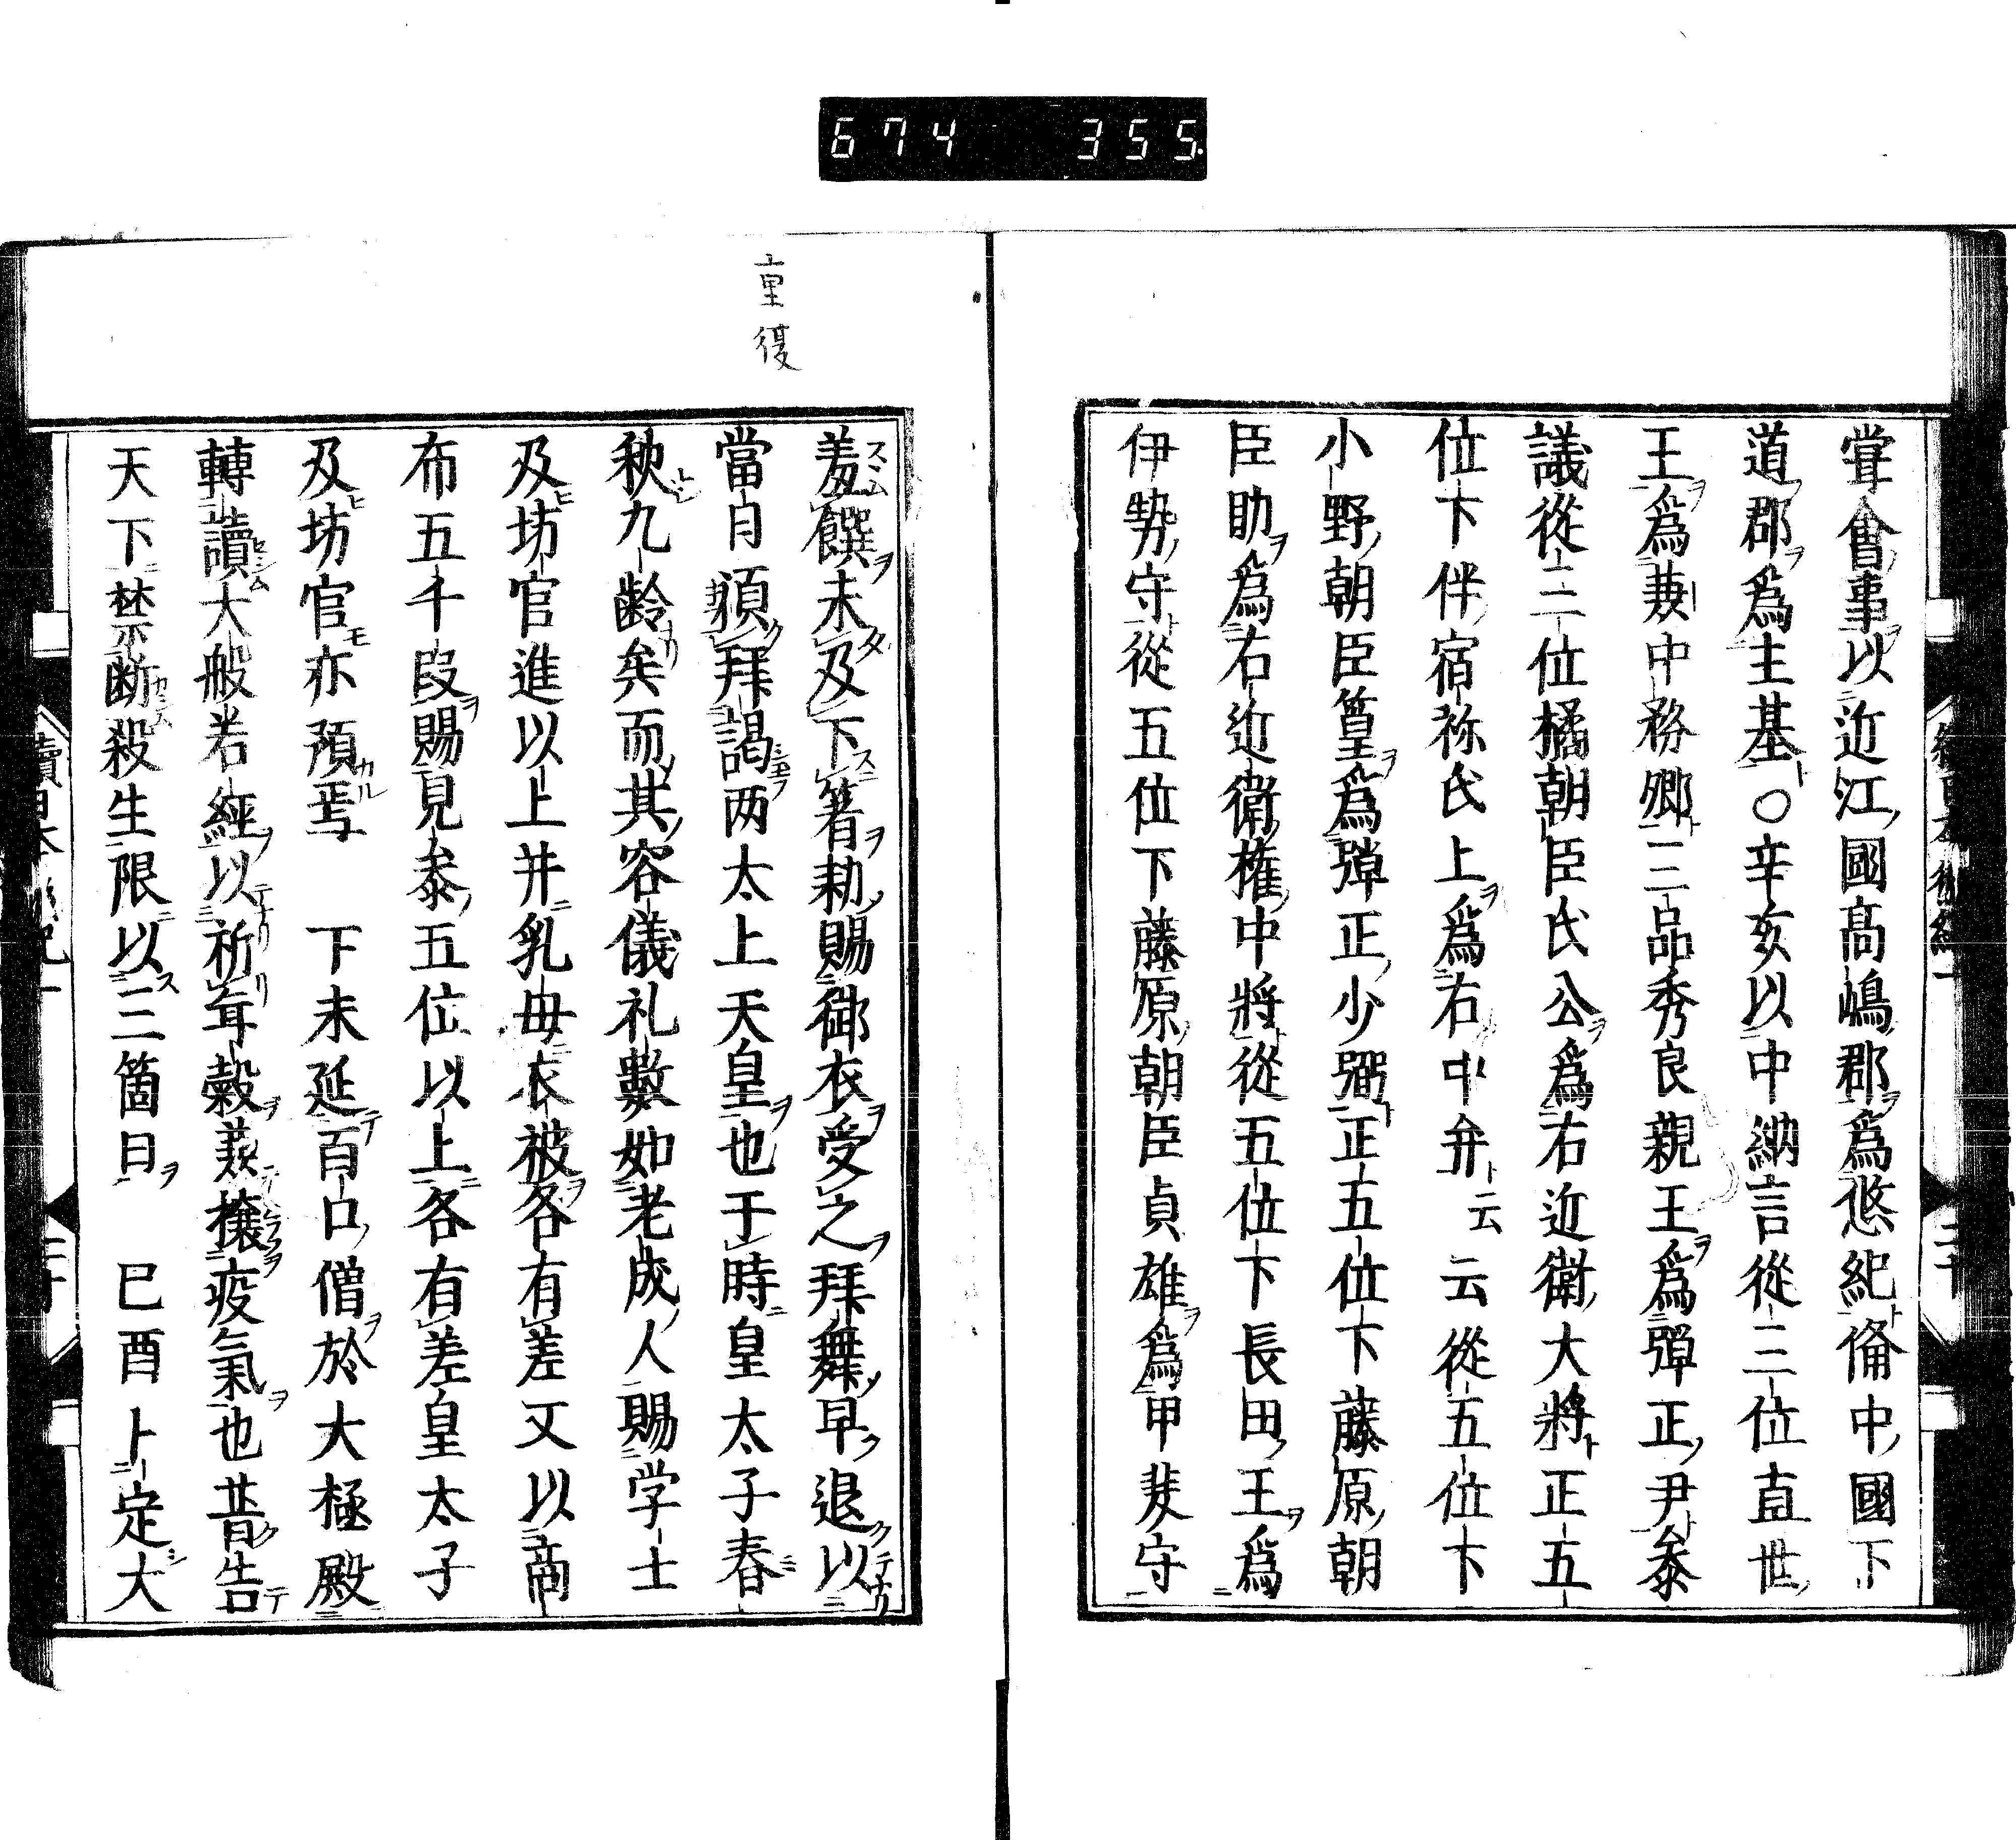 674 355
甞會事以近江國髙嶋郡爲悠紀備中國下
道郡爲主基〇辛亥以中納言從三位直世
王爲兼中務卿三品秀良親王爲彈正尹叅
議從三位橘朝臣氏公爲右近衛大將正五
位下伴宿祢氏上爲右中弁云云從五位下
小野朝臣篁爲彈正少弼正五位下藤原朝
臣助爲右近衛權中將從五位下長田王爲
伊勢守從五位下藤原朝臣貞雄爲甲斐守
重復
羞饌未及下箸勅賜御衣受之拜舞早退以
當日須拜謁两太上天皇也于時皇太子春
秋九齡矣而其容儀礼數如老成人賜学士
及坊官進以上并乳母衣被各有差又以商
布五千段賜見叅五位以上各有差皇太子
及坊官亦預焉 下未延百口僧於大極殿
轉讀大般若經以祈年穀兼攘疫氣也昔告
天下禁断殺生限以三箇日 巳酉卜定大